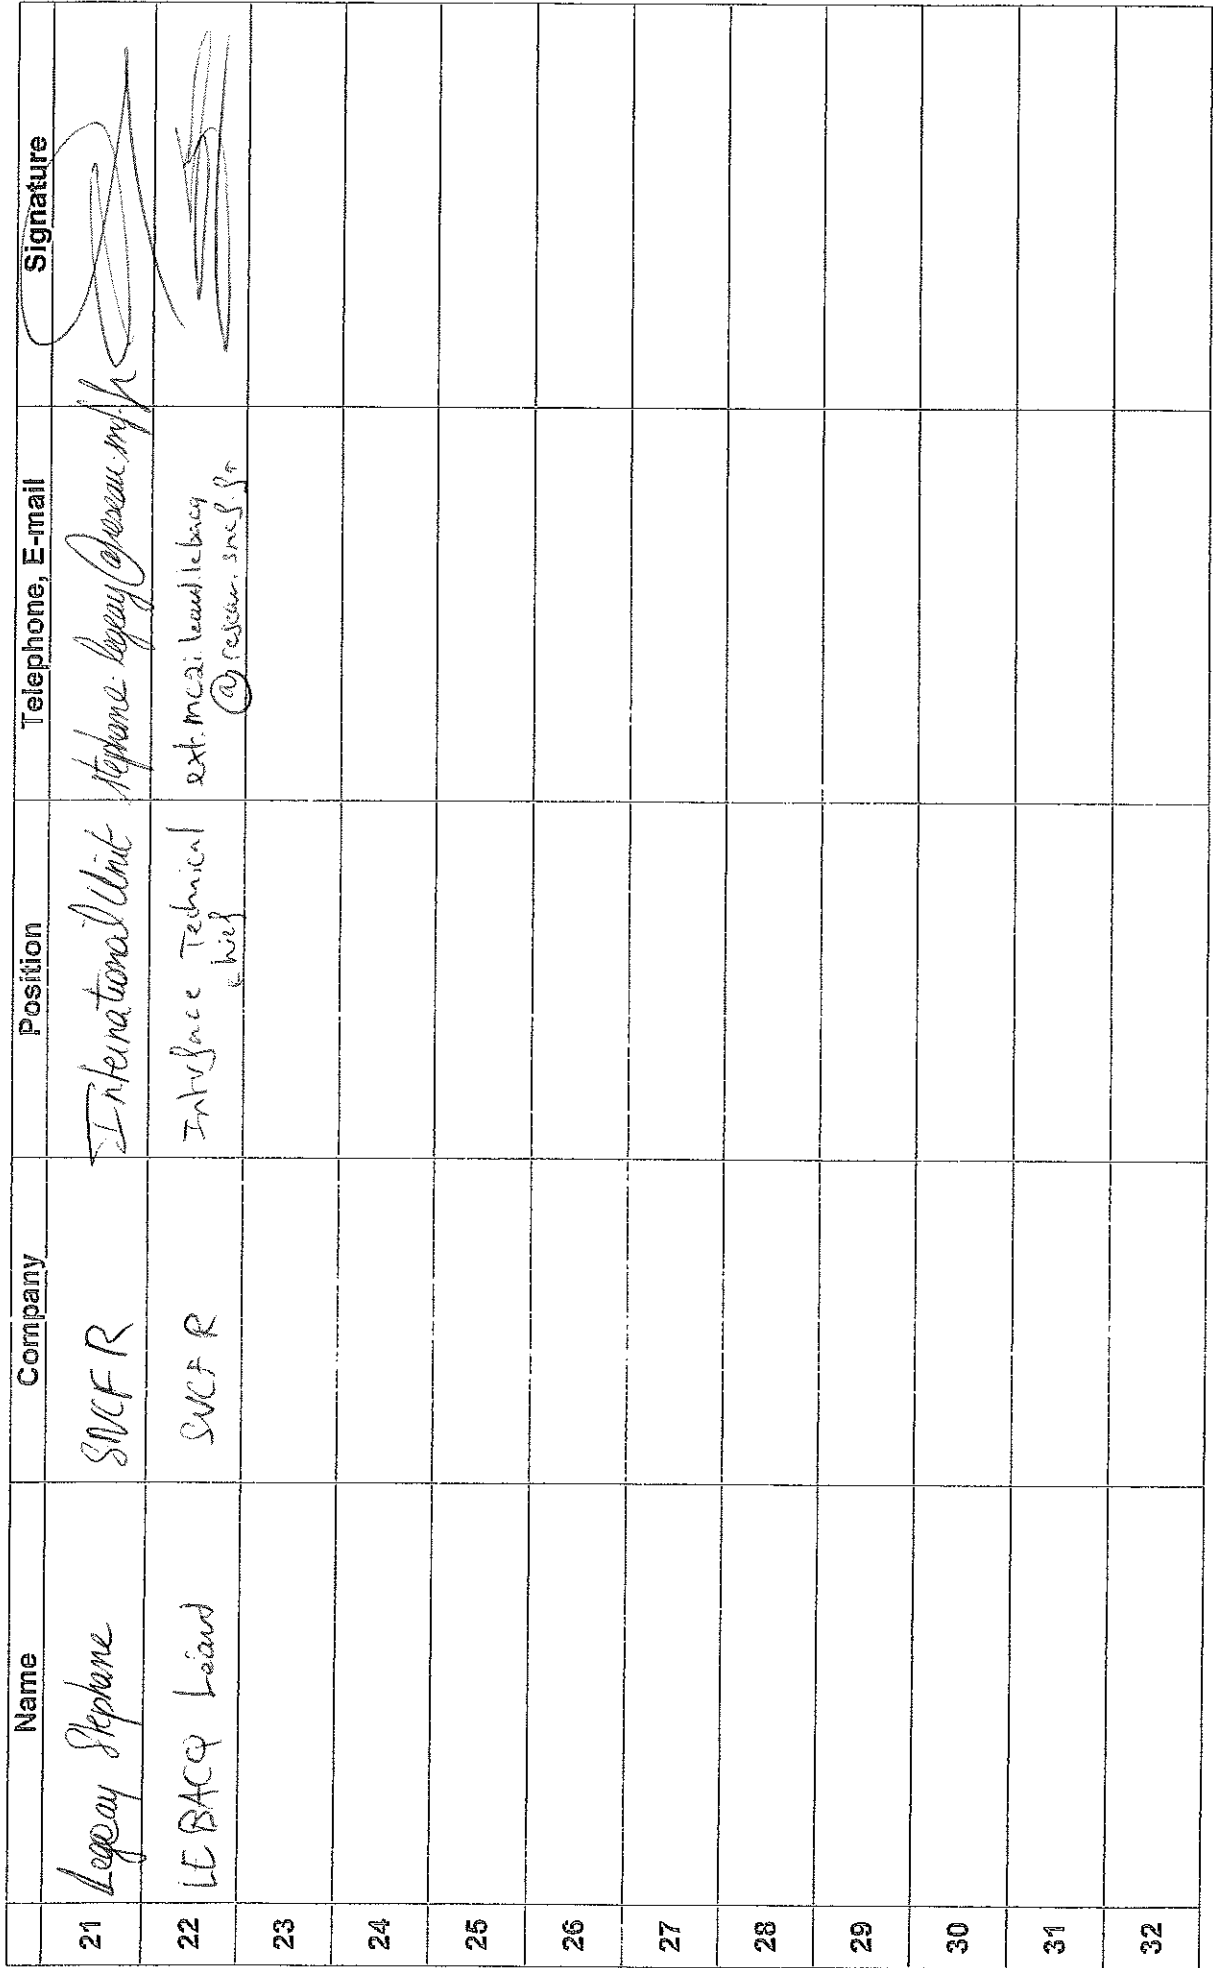 Name Company Position Telephone, E-mail Signature
21 Legeay Stephane SNCF R International Unit stephane.legeay@reseau.sncf.fr
22 LEBACQ Léaud SNCF R Interface Technical chief ext.mc2i.leaud.lebacq
@reseau.sncf.fr
23
24
25
26
27
28
29
30
31
32